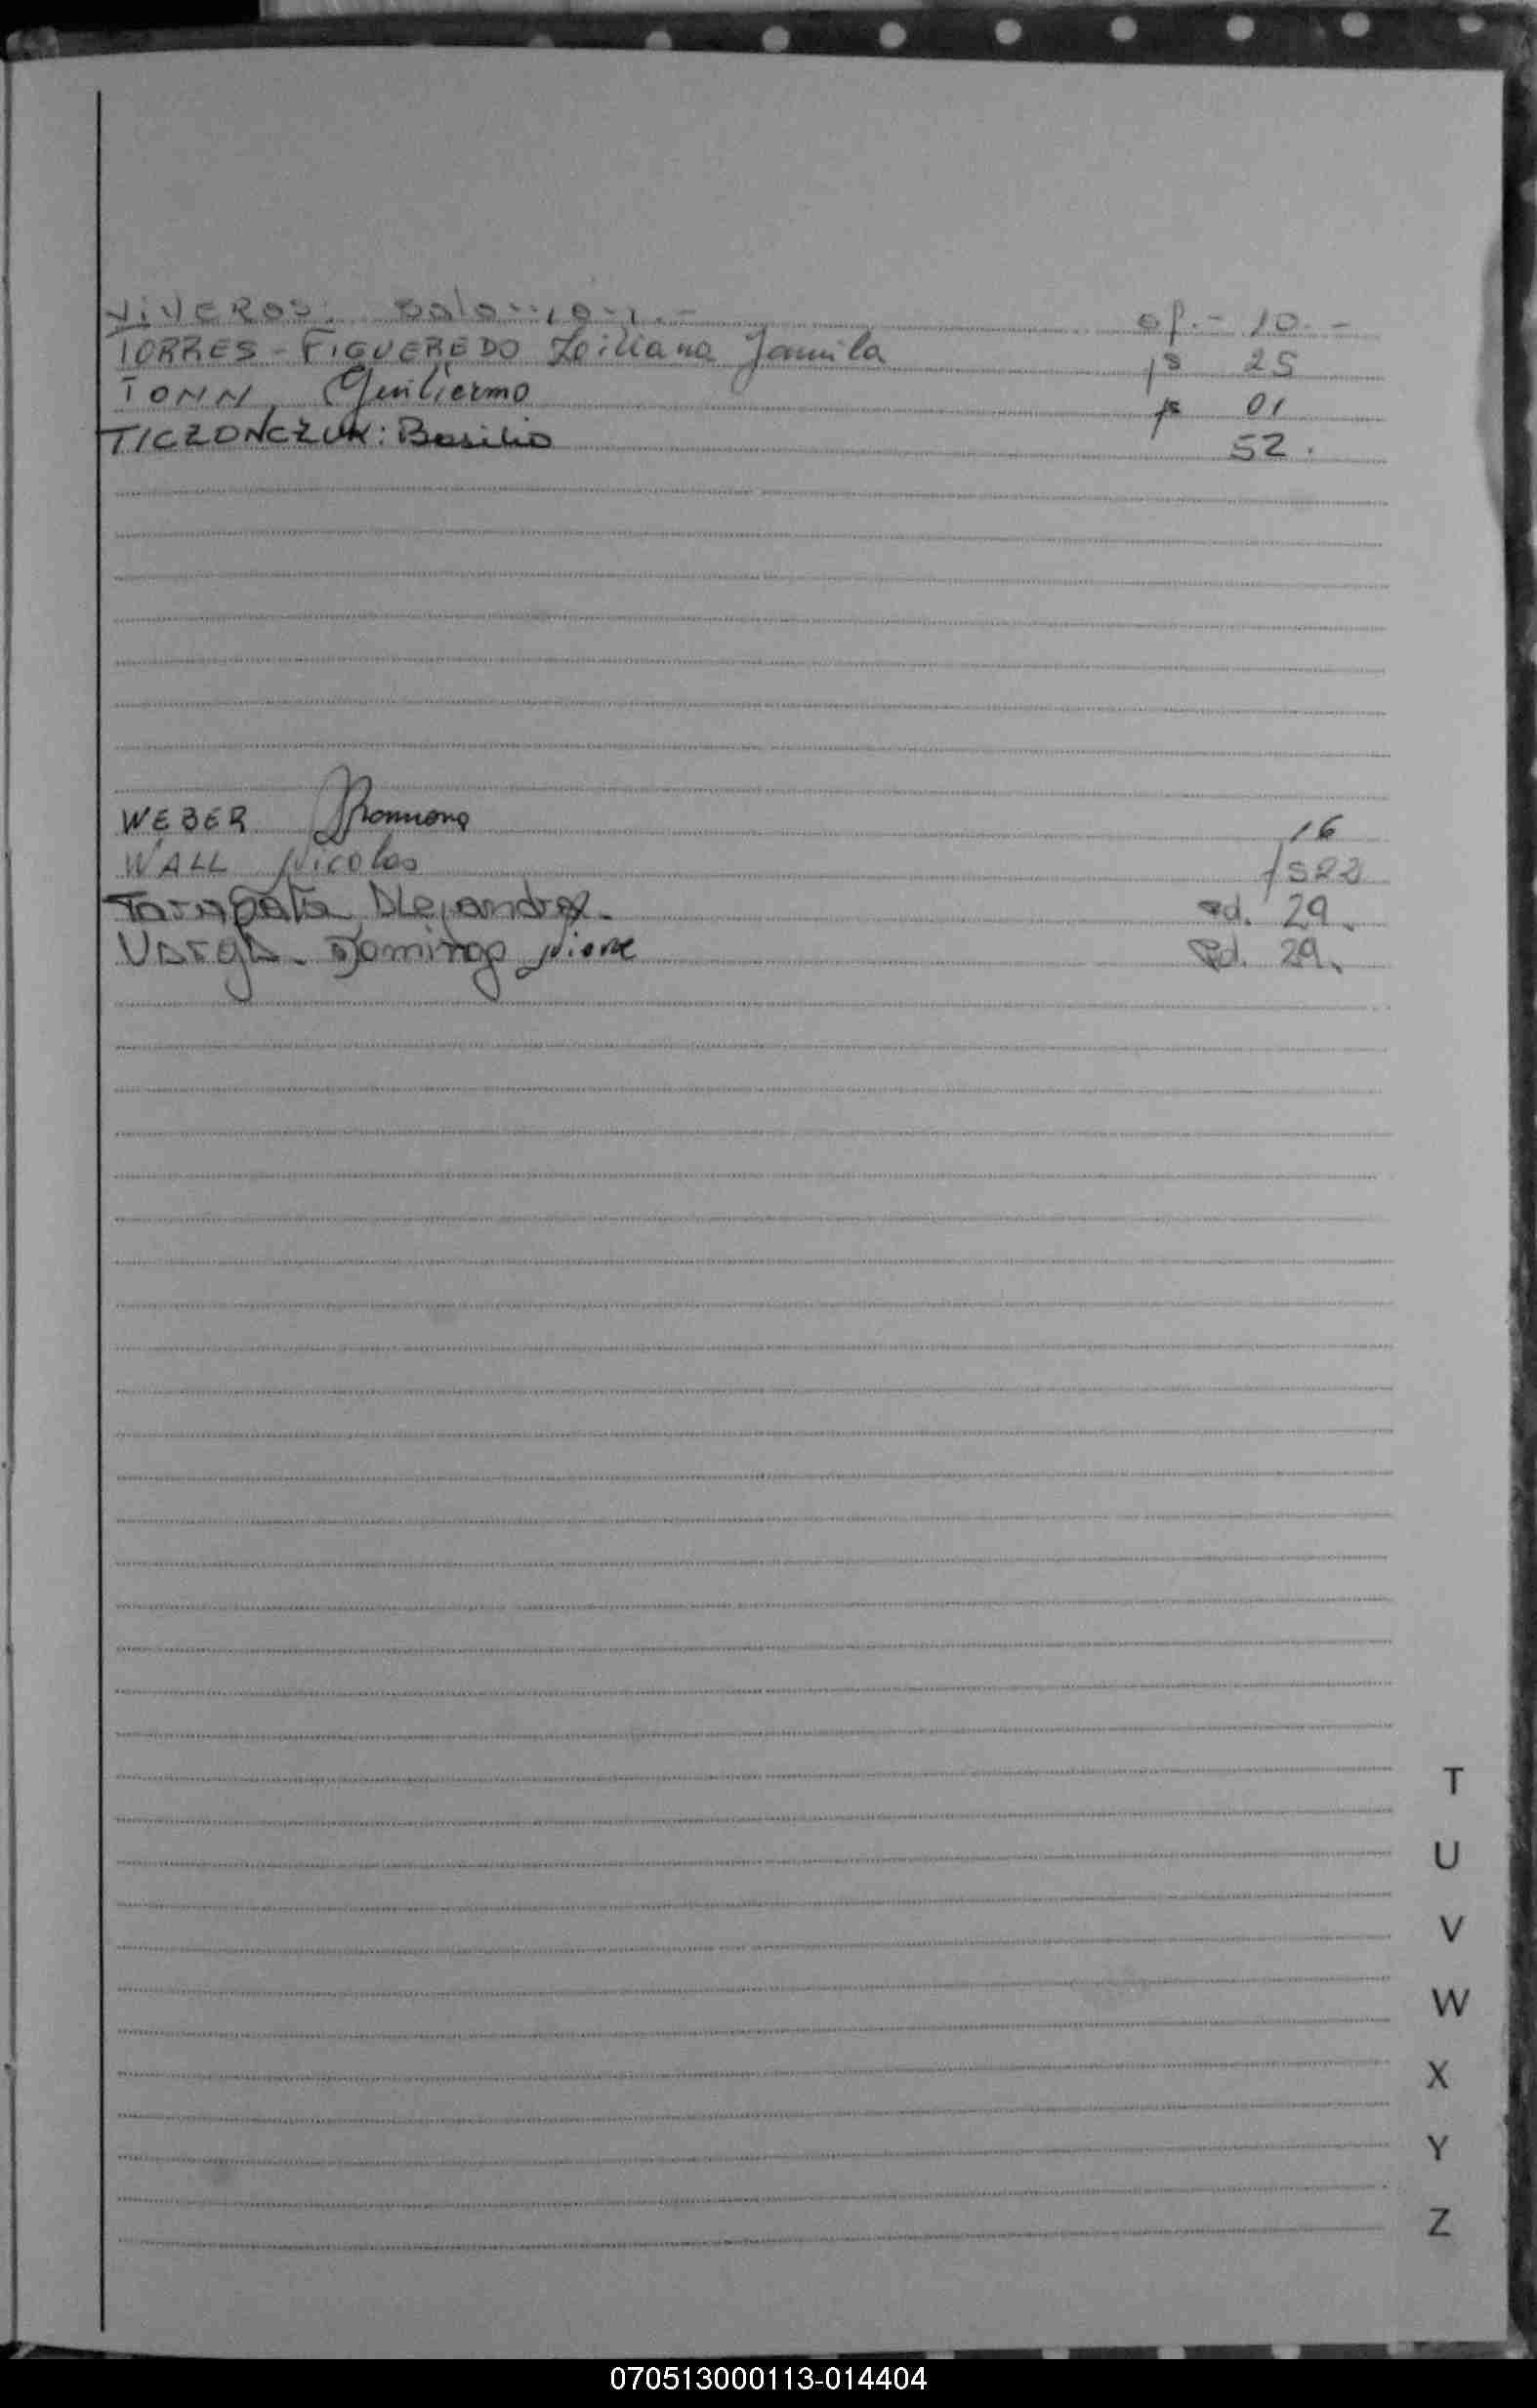 VIVEROS: Salomon.- of.- 10.-
TORRES - FIGUEREDO Liliana Jamila ps 25
TONN, Guillermo ps 01
TICZONCZUK: Basilio 52.
WEBER Romona 16
WALL Nicolas 1522
Tarapata Alejandra. ed. 29.
Varga. Domingo ed. 29.
T
U
V
W
X
Y
Z
070513000113-014404